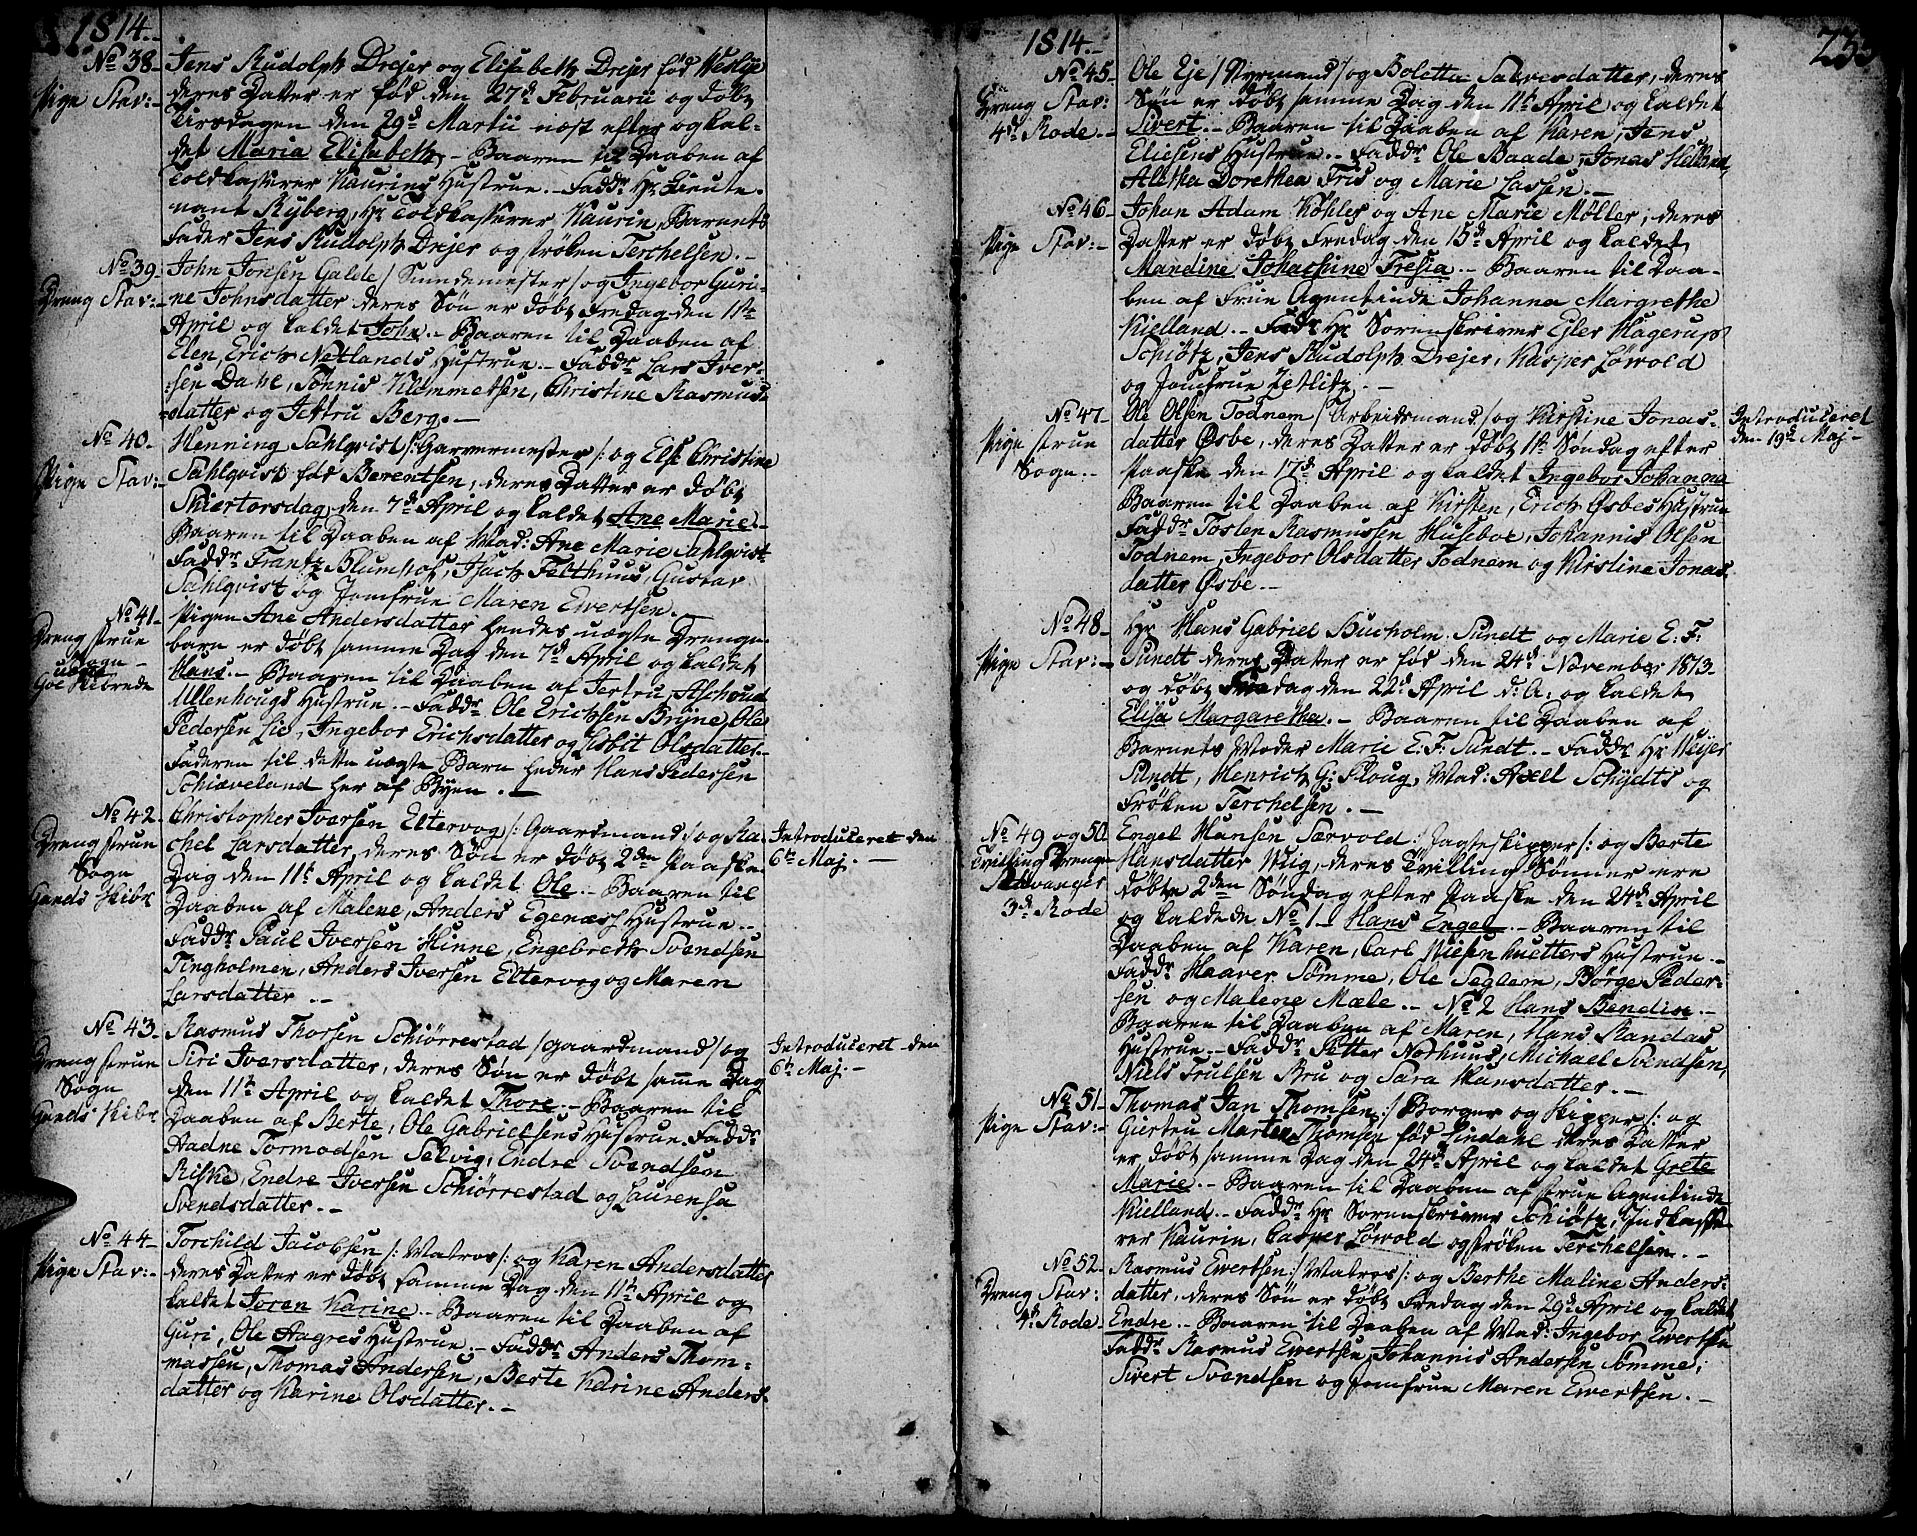 1814.
No 38.
Pige Stav:
Jens Rudolph Drejer og Elisabeth Drejer fød Weslye
deres Datter er fød den 27de Februarii og døbt
Tirsdagen den 29d Martii næst efter og kal-
det Maria Elisabeth. Baaren til Daaben af
Toldkasserer Kaurins Hustrue. Faddr Hr Lieute-
nant Ryberg, Hr Toldkasserer Kaurin, Barnets
Fader Jens Rudolph Drejer og frøken Terchelsen.
No 39.
Dreng Stav:
John Jonsen Galde /Sundemester/ og Ingebor Guri-
ne Johnsdatter deres Søn er døbt Fredag den 1te
April og kaldet John. Baaren til Daaben af
Elen, Erich Netlands Hustrue. Faddr Lars Iver-
sen Dahl, Tønnis Klemmetsen, Christine Rasmus-
datter og Jertru Berg.
No 40.
Pige Stav:
Henning Sahlqvist /:Garvermester:/ og Else Christine
Sahlqvist fød Berentsen, deres Datter er døbt
Skiertorsdag den 7d April og kaldet Ane Marie.
Baaren til Daaben af Mad: Ane Marie Sahlqvist
Faddr Frantz Blumhof, Isach Felthuus, Gustav
Sahlqvist og Jomfrue Maren Ewertsen.
No 41.
Dreng frue
Sogn
Goe Skibrede
Pigen Ane Andersdatter hendes uægte Drenge-
barn er døbt samme Dag den 7d April og kaldet
Hans. Baaren til Daaben af Jertru, Aschoud
Ullenhougs Hustrue. Faddr Ole Erichsen Bryne, Ole
Pedersen Lie, Ingebor Erichsdatter og Lisbit Olsdatter.
Faderen til dette uægte Barn heder Hans Pedersen
Schiæveland her af Byen.
No 42.
Dreng frue
Sogn
Gands Skibr
Christopher Iversen Eltervog /:Gaardmand:/ og Ra-
chel Larsdatter, deres Søn er døbt 2den Paaske
Dag den 11t April og kaldet Ole. Baaren til
Daaben af Malene, Anders Egenæs Hustrue.
Faddr Paul Iversen Hinne, Engebreth Svendsen
Tingholmen, Anders Iversen Eltervog og Maren
Larsdatter.
Introduceret den
6te Maj.
No 43.
Dreng frue
Sogn
Gands Skibr
Rasmus Thorsen Schiørrestad /gaardmand/ og
Siri Iversdatter, deres Søn er døbt samme Dag
den 11te April og kaldet Thore. Baaren til
Daaben af Berte, Ole Gabrielsens Hustrue. Faddr
Aadne Tormodsen Selvig, Endre Svendsen
Riske, Endre Iversen Schiørrestad og Laurensa
Svendsdatter.
Introduceret den
6te Maj.
No 44.
Pige Stav:
Torchild Jacobsen /:Matros:/ og Karen Andersdatter
deres Datter er døbt samme Dag den 11te April og
kaldet Joren Karine. Baaren til Daaben af
Guri, Ole Aagres Hustrue. Faddr Anders Thom-
massen, Thomas Andersen, Berte Karine Anders-
datter og Karine Olsdatter.
1814.
235
No 45.
Dreng Stav:
4de Rode.
Ole Eje /Styrmand/ og Boletta Salvesdatter, deres
Søn er døbt samme Dag den 11te April og kaldet
Sivert. Baaren til Daaben af Karen, Jens
Eliesens Hustrue. Faddr Ole Baade, Jonas Helland,
Aletha Dorethea Friis og Marie Lassen.
No 46.
Pige Stav:
Johan Adam Køhler og Ane Marie Møller, deres
Datter er døbt Fredag den 15de April og kaldet
Mandine Johachine Fresia. Baaren til Daa-
ben af Frue Agentinde Johanna Margrethe
Kielland. Faddr Hr Sorenskriver Ejler Hagerup
Schiøtz, Jens Rudolph Drejer, Kasper Løwold
og Jomfrue Zetlitz.
No 47.
Pige frue
Sogn.
Ole Olsen Todnem /Arbeidsmand/ og Kirstine Jonas-
datter Øsbe, deres Datter er døbt 1te Søndag efter
Paaske den 17de April og kaldet Ingebor Johanna
Baaren til Daaben af Kirsten, Erich Øsbes Hustrue
Faddr Tosten Rasmussen Huseboe, Johannis Olsen
Todnem, Ingebor Olsdatter Todnem og Kirstine Jonas-
datter Øsbe.
Introduceret
den 19de Maj.
No 48.
Pige Stav:
Hr Hans Gabriel Bucholm Sundt og Marie E. F:
Sundt deres Datter er fød den 24d November 1813
og døbt Fredag den 22d April d: A: og kaldet
Elisa Margaretha. Baaren til Daaben af
Barnets Moder Marie E: F: Sundt. Faddr Hr Weyer
Sundt, Henrich G: Ploug, Mad: Axel Schydts og
Frøken Terchelsen.
No 49 og 50.
Tvilling Drenge
Stavanger
3d Rode
Engel Hansen Særvold /:Jagteskipper:/ og Berte
Hansdatter Wiig, deres Tvilling Sønner ere
døbte 2den Søndag efter Paaske den 24de April
og kaldede No 1 Hans Engel. Baaren til
Daaben af Karen, Carl Wiesenhuetters Hustrue.
Faddr Haaver Sømme, Ole Seglem, Børge Peder-
sen og Malene Mæle. No 2 Hans Bendix.
Baaren til Daaben af Maren, Hans Randas
Hustrue. Faddr Petter Nothuus, Michael Svendsen,
Niels Trulsen Bru og Sara Hansdatter.
No 51.
Pige Stav:
Thomas Jan Thomsen /:Borger og Skipper:/ og
Giertru Marten Thomsen fød Lindahl deres Datter
er døbt samme Dag den 24de April og kaldet Grete
Marie. Baaren til Daaben af frue Agentinde
Kielland. Faddr Hr Sorenskriver Schiøtz, Indkasse-
rer Kaurin, Casper Løwold og frøken Terchelsen.
No 52.
Dreng Stav:
4d Rode
Rasmus Ewertsen /:Matros:/ og Berthe Maline Anders-
datter, deres Søn er døbt Fredag den 29de April og kaldet
Endre. Baaren til Daaben af Mad: Ingebor Ewertsen
Faddr Rasmus Ewertsen, Johannis Andersen Sømme,
Sivert Svendsen og Jomfrue Maren Ewertsen.